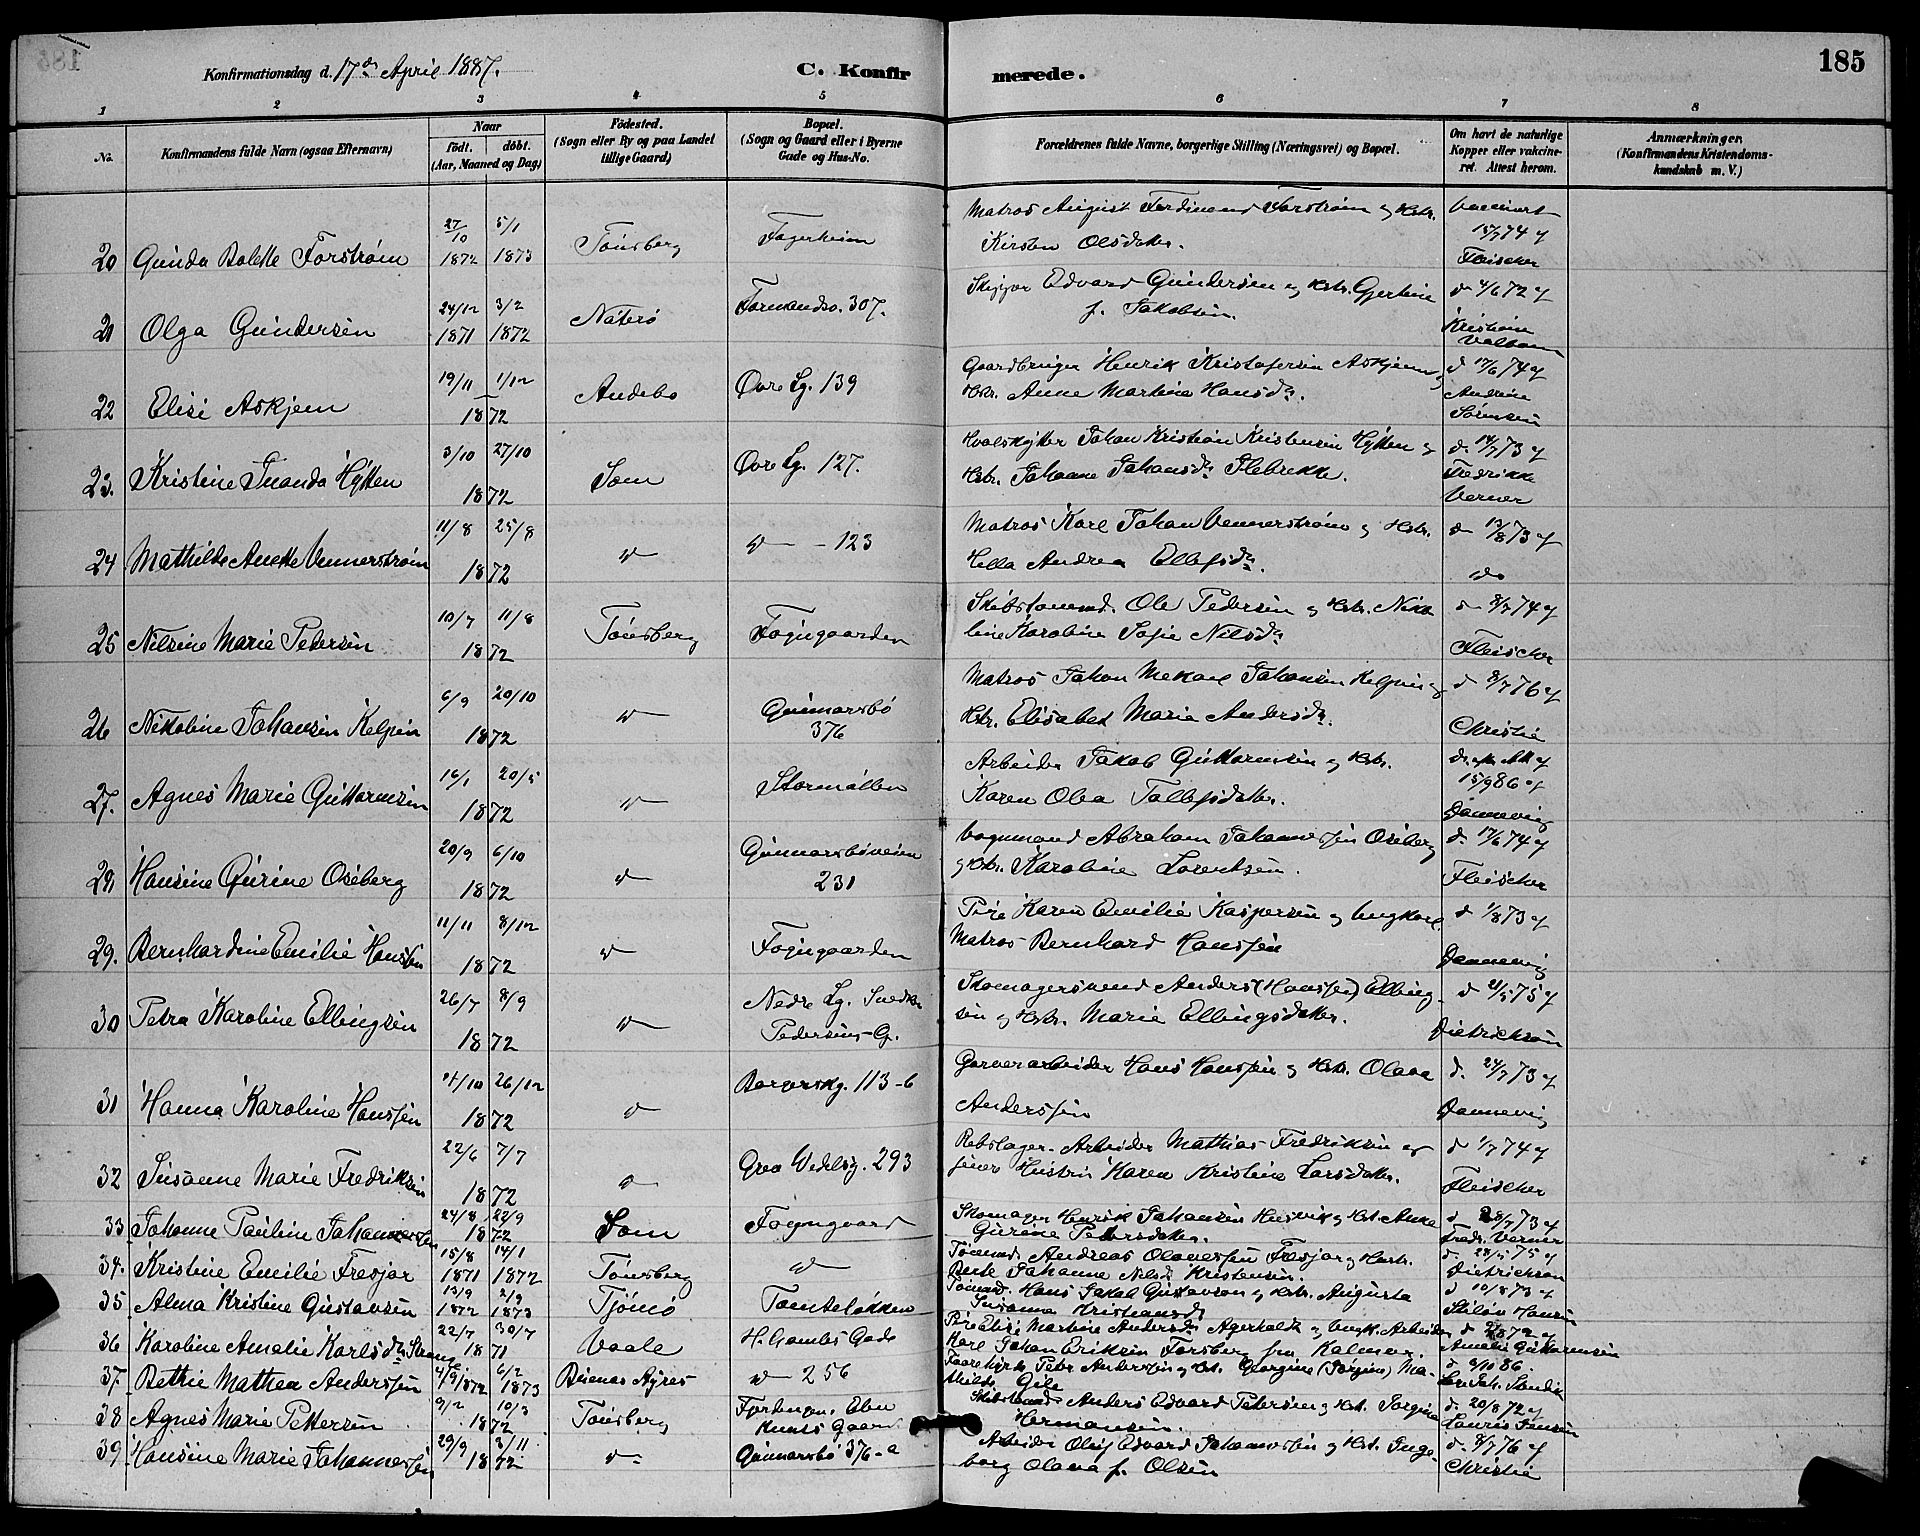 Konfirmationsdag d. 17de April 1887.
C. Konfirmerede.
185
1 2 3 4 5 6 7 8
No.
Konfirmandens fulde Navn (ogsaa Efternavn)
Naar
födt. döbt.
(Aar, Maaned og Dag)
Födested.
(Sogn eller By og paa Landet
tillige Gaard)
Bopæl.
(Sogn og Gaard eller i Byerne
Gade og Hus-No.
Forældrenes fulde Navne, borgerlige Stilling (Næringsvei) og Bopæl.
Om havt de naturlige
Kopper eller vakcine-
ret. Attest herom.
Anmærkninger.
(Konfirmandens Kristendoms-
kundskab m. V.)
20 Gunda Bolette Forstrøm 27/10 1872 5/1 1873 Tønsberg Fagerheim
Matros August Ferdinand Forstrøm og Hstr.
Kirsten Olsdatter.
15/7 74 af
Fleischer
21 Olga Gundersen 24/12 1871 3/2 1872 Nøterø 307.
Skipper Edvard Gundersen og Hstr. Gjertine
f. Jakobsen.
d 4/6 72 af
Kristiane
22 Elise Askjem 19/11 1/12 1872 Andebo Øvre Lg. 139
Gaardbruger Henrik Kristofersen Askjem og
Hstr. Anne Martine Hansdr.
d 17/6 74 af
Andrine
Sørensen
23. Kristine Inanda Hytten 3/10 27/10 1872 Sem Øvre Lg. 127.
Hvalskytter Johan Kristian Kristensen Hytten og
Hstr. Johanne Johansdr Flebrekke.
d. 14/7 73 af
Fredrikke
Verner
24 Mathilde Anette Vennerstrøm 11/8 25/8 1872 " " - 123
Matros Karl Johan Vennerstrøm og Hstr.
Hella Andrea Ellefsdr.
d 12/8 73 af
do
25 Nilsine Marie Pedersen 10/7 11/8 1872 Tønsberg Fogngaarden
Skibstømmd. Ole Pedersen og Hstr. Niko-
line Karoline Sofie Nilsdr
d 8/7 74 af
Fleischer
26 Nikoline Johansen Kelpin 6/9 20/10 1872 " Gunnarsbø
376
Matros Johan Mekael Johansen Kelpin og
Hstr. Elisabet Marie Andersdr.
d 8/7 76 af
Christie
27. Agnes Marie Guttormsen 16/1 20/5 1872 " Stormøllen
Arbeider Jakob Guttormsen og Hstr.
Karen Olea Tollefsdatter.
15/9 86 af
Dannevig
28 Hansine Gurine Oseberg 20/9 6/10 1872 " Gunnarsbøveien
231
Vognmand Abraham Johannessen Oseberg
og Hstr. Karoline Lorentsen.
d. 17/6 74 af
Fleischer
29. Bernhardine Emilie Hanssen 11/11 8/12 1872 " Fogngaarden
Pige Karen Emilie Kaspersen og Ungkarl
Matros Bernhard Hanssen
d 1/8 73 af
Dannevig
30 Petra Karoline Ellingsen 26/7 8/9 1872 " Nedre Lg. Snedker
Pedersens G.
Skomagersvend Anders (Hanssen) Elling-
sen og Hstr. Marie Ellingsdatter.
d 21/5 75 af
Dietrichson
31 Hanna Karoline Hanssen 21/10 26/12 1872 " 113-6
Garverarbeider Hans Hanssen og Hstr. Olava
Anderssen
d. 24/7 73 af
Dannevig
32 Susanne Marie Fredriksen 22/6 7/7 1872 " Grev Wedelsg. 293
Rebslager. Arbeider Mathias Fredriksen og
Hustru Karen Kristine Larsdatter.
d 1/7 74 af
Fleischer
33 Johanne Pauline Johannessen 24/8 22/9 1872 Sem Fogngaard
Skomager Henrik Johansen og Hst. Anne
Gurine Petersdatter.
d 28/7 73 af
Fredr. Verner
34. Kristine Emilie Fresjar 15/8 1871 14/1 1872 Tønsberg "
Tømmd. Andreas Olavessen Fresjar og Hustr.
Berte Johanne Nilsd Kristensen.
d. 28/5 75 af
Dietrichson
35 Alma Kristine Gustavsen 13/9 1872 2/9 1873 Tjømø Tomteløkken
Tømmd. Hans Jakob Gustavson og Hstr. Augusta
Susanna Kristiansdr
d 10/8 73 af
Hansen
36 Karoline Amalie Karlsdr Strange 22/7 30/7 1871 Vaale H. Gambles Gade
Pige Elise Martine Andersdr Agerholdt og Ungk. Arbeider
Karl Johan Eriksen Forsberg fra Kalmar.
Amalie Guttormsen
37 Bethie Mathea Anderssen 4/9 1872 6/2 1873 Buenas Ayres " 256
Peter Anderssen og Hst. Georgine (Jørgine) Ma-
thilde Gile
d. 9/10 86.
38 Agnes Marie Pettersen 9/2 10/3 1872 Tønsberg Fjerdingen. Eben
Gaard
Anders Edvard Petersen og Hst. Jørgine
Hermansen.
d. 20/8 72 af
Lauris Jensen
39 Hansine Marie Johannessen 29/9 3/11 1872 " Gunnarsbø 376-a
Arbeider Oluf Edvard Johannessen og Hst. Inge-
borg Olava f. Olsen
d. 8/7 76 af
Christie